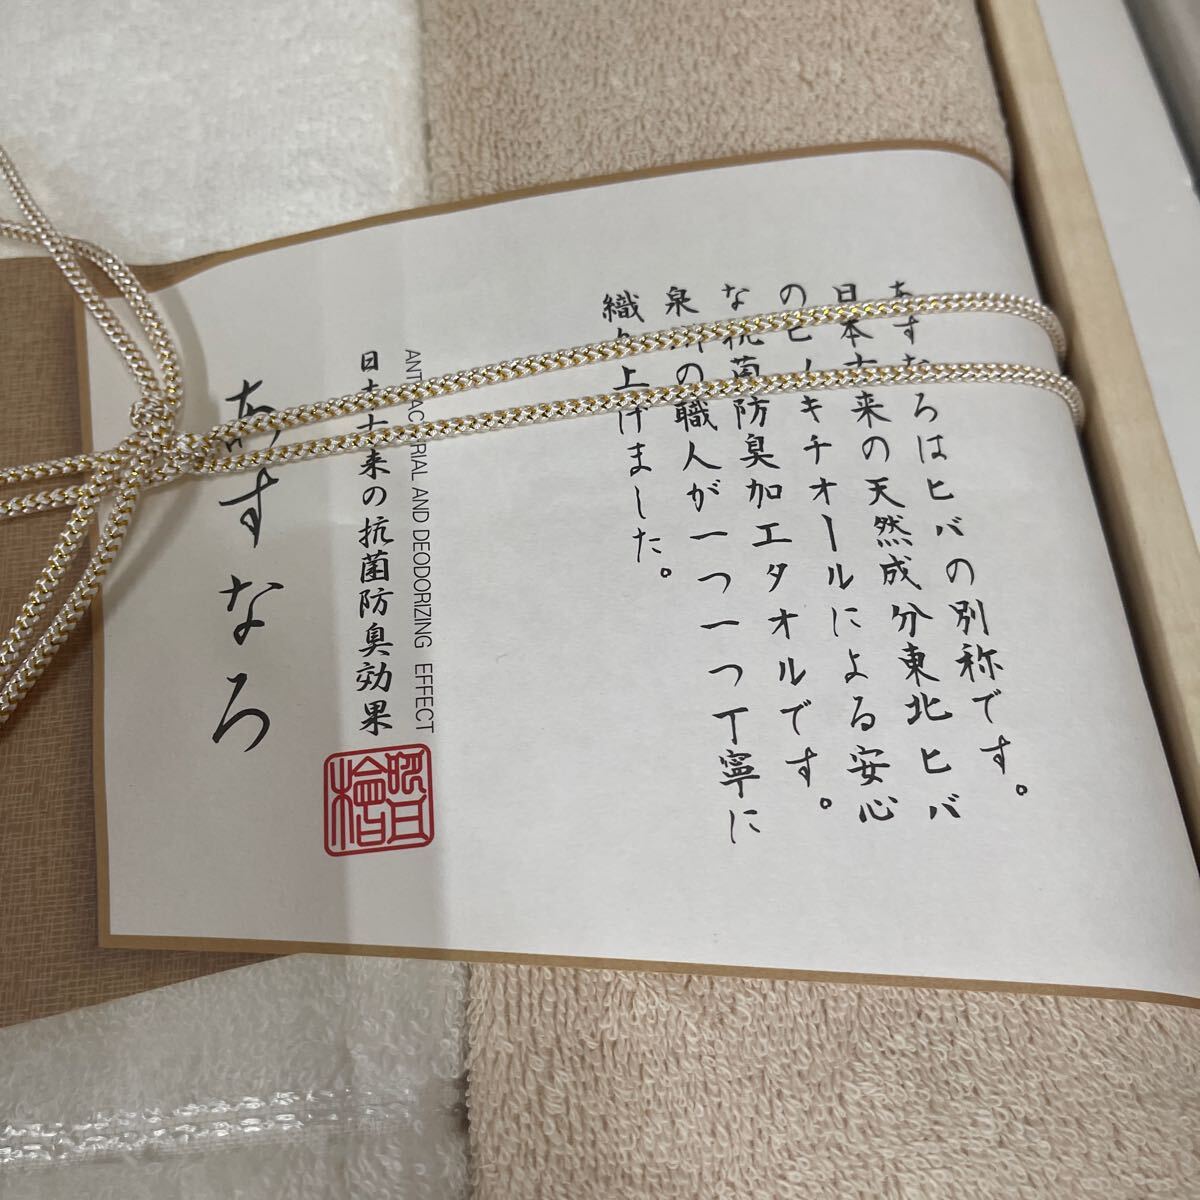 あすなろはヒバの別称です。
日本古来の天然成分東北ヒバ
のヒノキチオールによる安心
な抗菌防臭加工タオルです。
泉州の職人が一つ一つ丁寧に
織り上げました。
ANTIBACTERIAL AND DEODORIZING EFFECT
日本古来の抗菌防臭効果
あすなろ